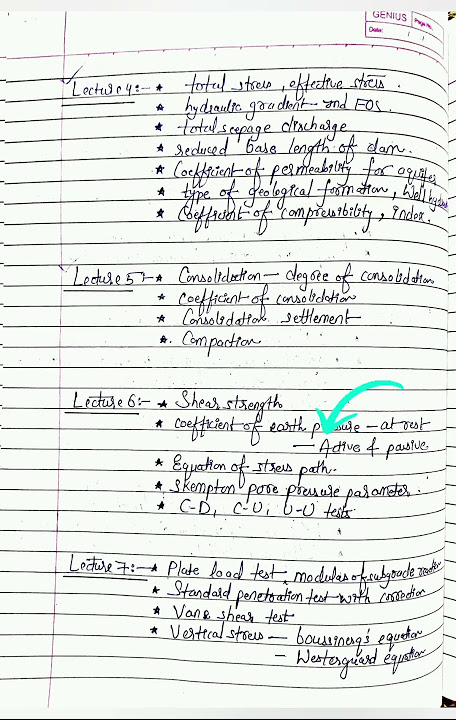 GENIUS
Page No.
Date: / /
Lecture 4:- * total stress, effective stress.
* hydraulic gradient and FOS
* total seepage discharge
* reduced base length of dam.
* Coefficient of permeability for aquifer
* type of geological formation, Well
* Coefficient of compressibility, index.
Lecture 5:- * Consolidation — degree of consolidation
* coefficient of consolidation
* Consolidation settlement
* Compaction
Lecture 6:- * Shear strength
* coefficient of earth pressure - at rest
— Active & passive
* Equation of stress path.
* Skempton pore pressure parameter.
* C-D, C-U, U-U tests
Lecture 7:- * Plate load test, modulas of subgrade
* Standard penetration test with correction
* Vane shear test
* Vertical stress — boussinesq's equation
— Westerguard equation